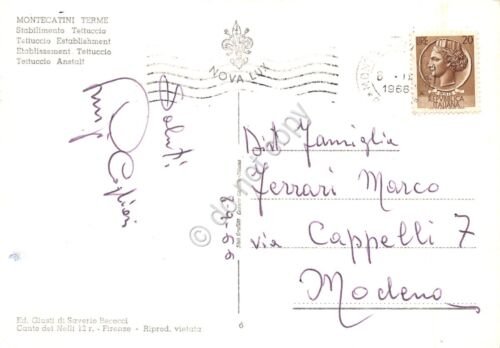 MONTECATINI TERME
Stabilimento Tettuccio
Tettuccio Establishment
Etablissement Tettuccio
Tettuccio Anstalt
NOVA LUX
1966
LIRE 20
REPUBBLICA
ITALIANA
Saluti
Dist Famiglia
Ferrari Marco
via Cappelli 7
Modena
8-9-66
do not copy
Ed. Giusti di Saverio Becocci
Canto dei Nelli 12 r. - Firenze - Riprod. vietata
6